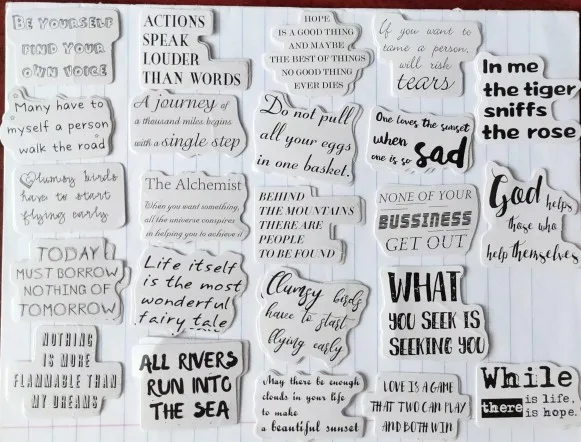 BE YOURSELF
FIND YOUR
OWN VOICE
ACTIONS
SPEAK
LOUDER
THAN WORDS
HOPE
IS A GOOD THING
AND MAYBE
THE BEST OF THINGS
NO GOOD THING
EVER DIES
If you want to
tame a person,
will risk
tears
In me
the tiger
sniffs
the rose
Many have to
myself a person
walk the road
A journey of
a thousand miles begins
with a single step
Do not pull
all your eggs
in one basket.
One loves the sunset
when
one is so sad
God helps
those who
help themselves
Clumsy birds
have to start
flying early
The Alchemist
When you want something,
all the universe conspires
in helping you to achieve it
BEHIND
THE MOUNTAINS
THERE ARE
PEOPLE
TO BE FOUND
NONE OF YOUR
BUSSINESS
GET OUT
TODAY
MUST BORROW
NOTHING OF
TOMORROW
Life itself
is the most
wonderful
fairy tale
Clumsy birds
have to start
flying early
WHAT
YOU SEEK IS
SEEKING YOU
NOTHING
IS MORE
FLAMMABLE THAN
MY DREAMS
ALL RIVERS
RUN INTO
THE SEA
May there be enough
clouds in your life
to make
a beautiful sunset
LOVE IS A GAME
THAT TWO CAN PLAY
AND BOTH WIN
While
there is life.
is hope.